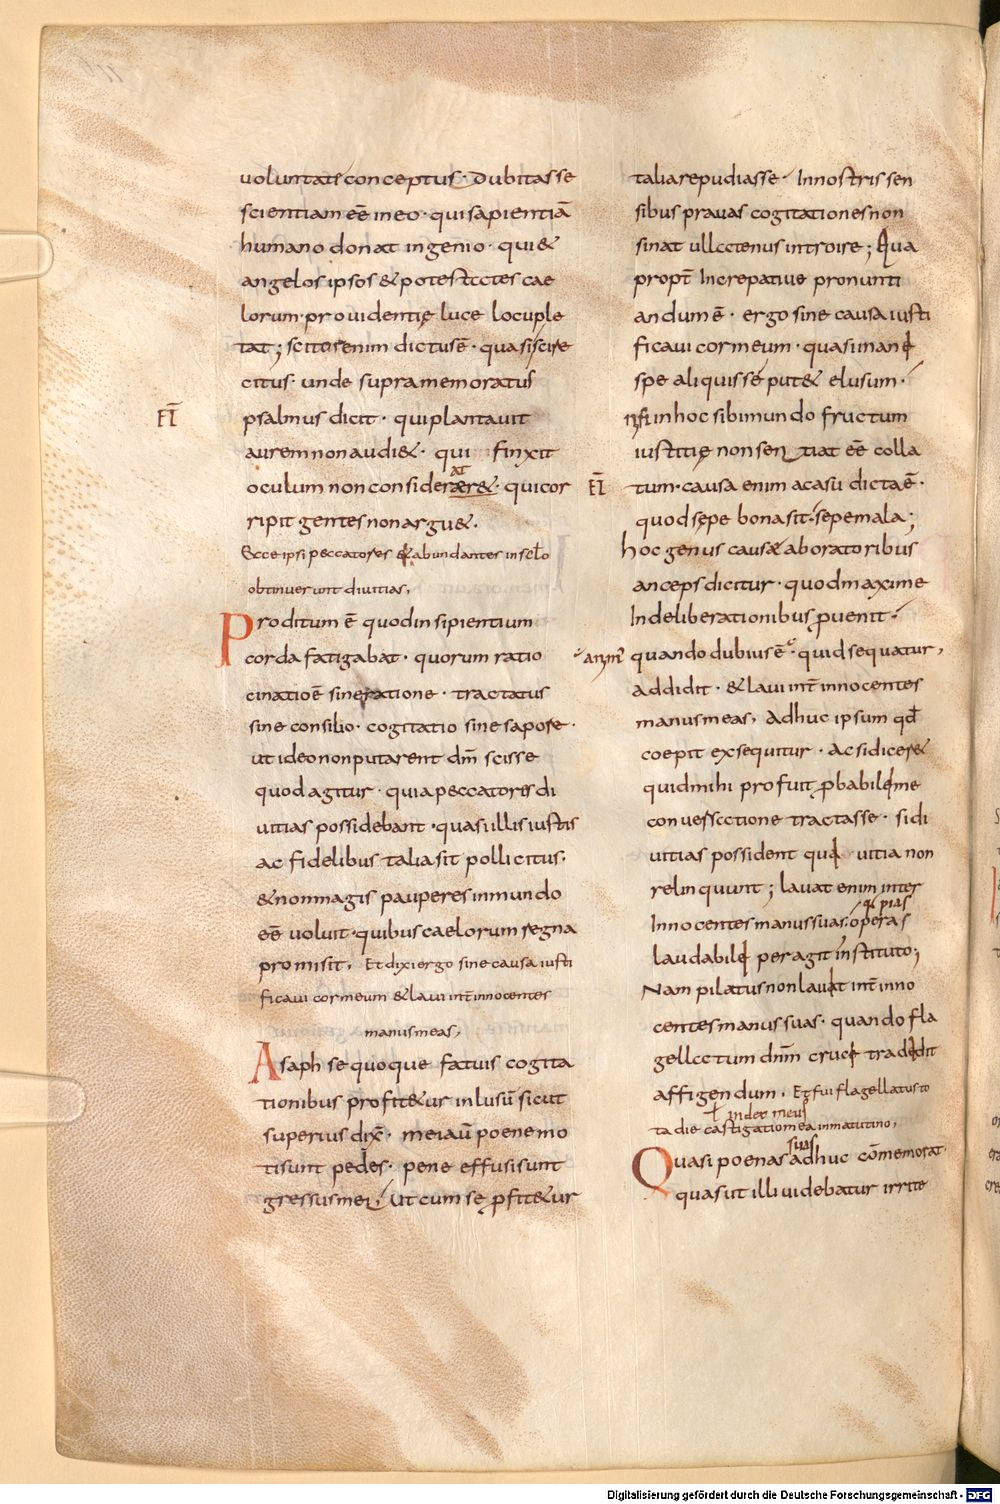 uoluntate conceptus· dubitasse
scientiam eē in eo· qui sapientiā
humano donat ingenio· qui &
angelos ipsos & potestates cae
lorum· prouidentię luce locuple
tat; scitus enim dictus ē· quasi scire
citus· unde supra memoratus
psalmus dicit· qui plantauit
aurem non audi&· qui finxit
oculum non consider&· qui cor
ripit gentes non argu&·
Ecce ipsi peccatores & abundantes in sēlo
obtinuerunt diuitias,
Proditum ē quod insipientium
corda fatigabat· quorum ratio
cinatio ē sine ratione· tractatus
sine consilio· cogitatio sine sapore·
ut ideo non putarent dm̄ scisse
quod agitur· quia peccatores di
uitias possidebant· quasi illis iustis
ac fidelibus talia sit pollicitus·
& non magis pauperes in mundo
eē uoluit· quibus caelorum regna
promisit, Et dixi ergo sine causa iusti
ficaui cor meum & laui int̄ innocentes
manus meas,
Asaph se quoque fatuis cogita
tionibus profit&ur inlusū sicut
superius dix̄· mei aū poene mo
ti sunt pedes· pene effusi sunt
gressus mei; Ut cum se ꝓfit&ur
talia repudiasse· In nostris sen
sibus prauas cogitationes non
sinat ullatenus introire; Qua
propt̄ Increpatiue pronunti
andum ē· ergo sine causa iusti
ficaui cor meum· quasi inani
spe aliquis se put& elusum·
in hoc sibi mundo fructum
iustitię non sentiat eē colla
tum· causa enim a casu dicta ē·
quod sępe bona sit· sępe mala;
hoc genus causae ab oratoribus
anceps dicitur· quod maxime
In deliberationibus ꝓuenit·
quando dubius ē· quid sequatur,
addidit· & laui int̄ innocentes
manus meas, Adhuc ipsum qd̄
coepit exsequitur· Ac si dicer&
quid mihi profuit ꝓbabili me
conuersatione tractasse· si di
uitias possident qui uitia non
relinquunt; lauat enim inter
qi pias
Innocentes manus suas· opera s
laudabili peragit instituto;
Nam pilatus non lauit int̄ inno
centes manus suas· quando fla
gellatum dnm̄ cruci tradidit
affigendum, Et fui flagellatus to
ł index meus
ta die castigatio mea in matutino,
suas
Quasi poenas adhuc cōmemorat·
quas ut illi uidebatur irrite
Digitalisierung gefördert durch die Deutsche Forschungsgemeinschaft - DFG